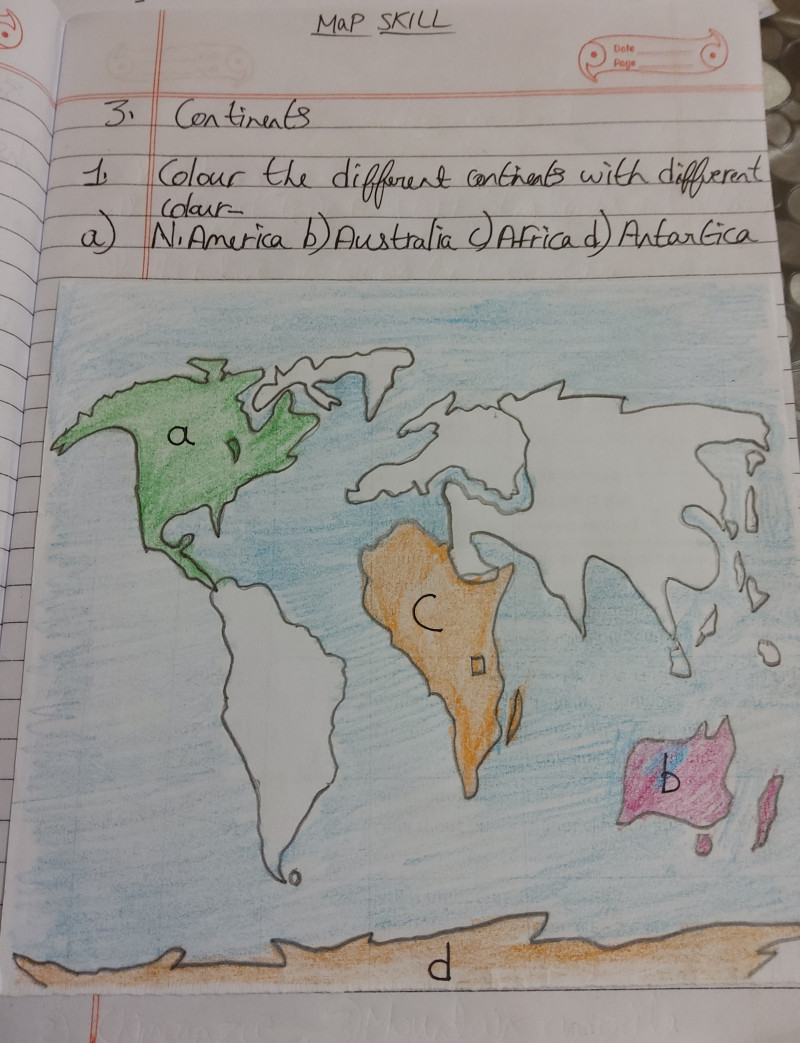 MaP SKILL
Date
Page
3. Continents
1. Colour the different continents with different
colour-
a) N. America b) Australia c) Africa d) Antartica
a
C
b
d